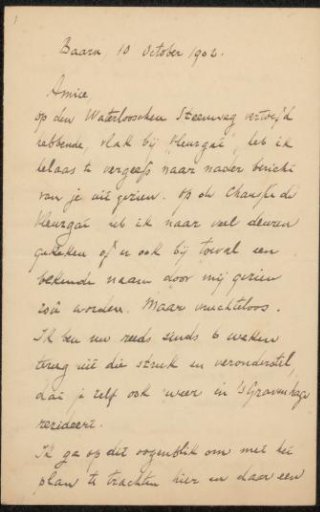 Baarn, 10 October 1902.
Amice
op den Waterlooschen Steenweg vertoefd
hebbende, vlak bij "Vleurgat", heb ik
helaas te vergeefs naar nader bericht
van je uit gezien. Op de Chaussée de
Vleurgat heb ik naar veel deuren
gekeken of er ook bij toeval een
bekende naam door mij gezien
zou worden. Maar vruchteloos.
Ik ben nu reeds sinds 6 weken
terug uit die streek en veronderstel,
dat je zelf ook weer in 's Gravenhage
resideert.
Ik ga op dit oogenblik om met het
plan te trachten hier en daar een